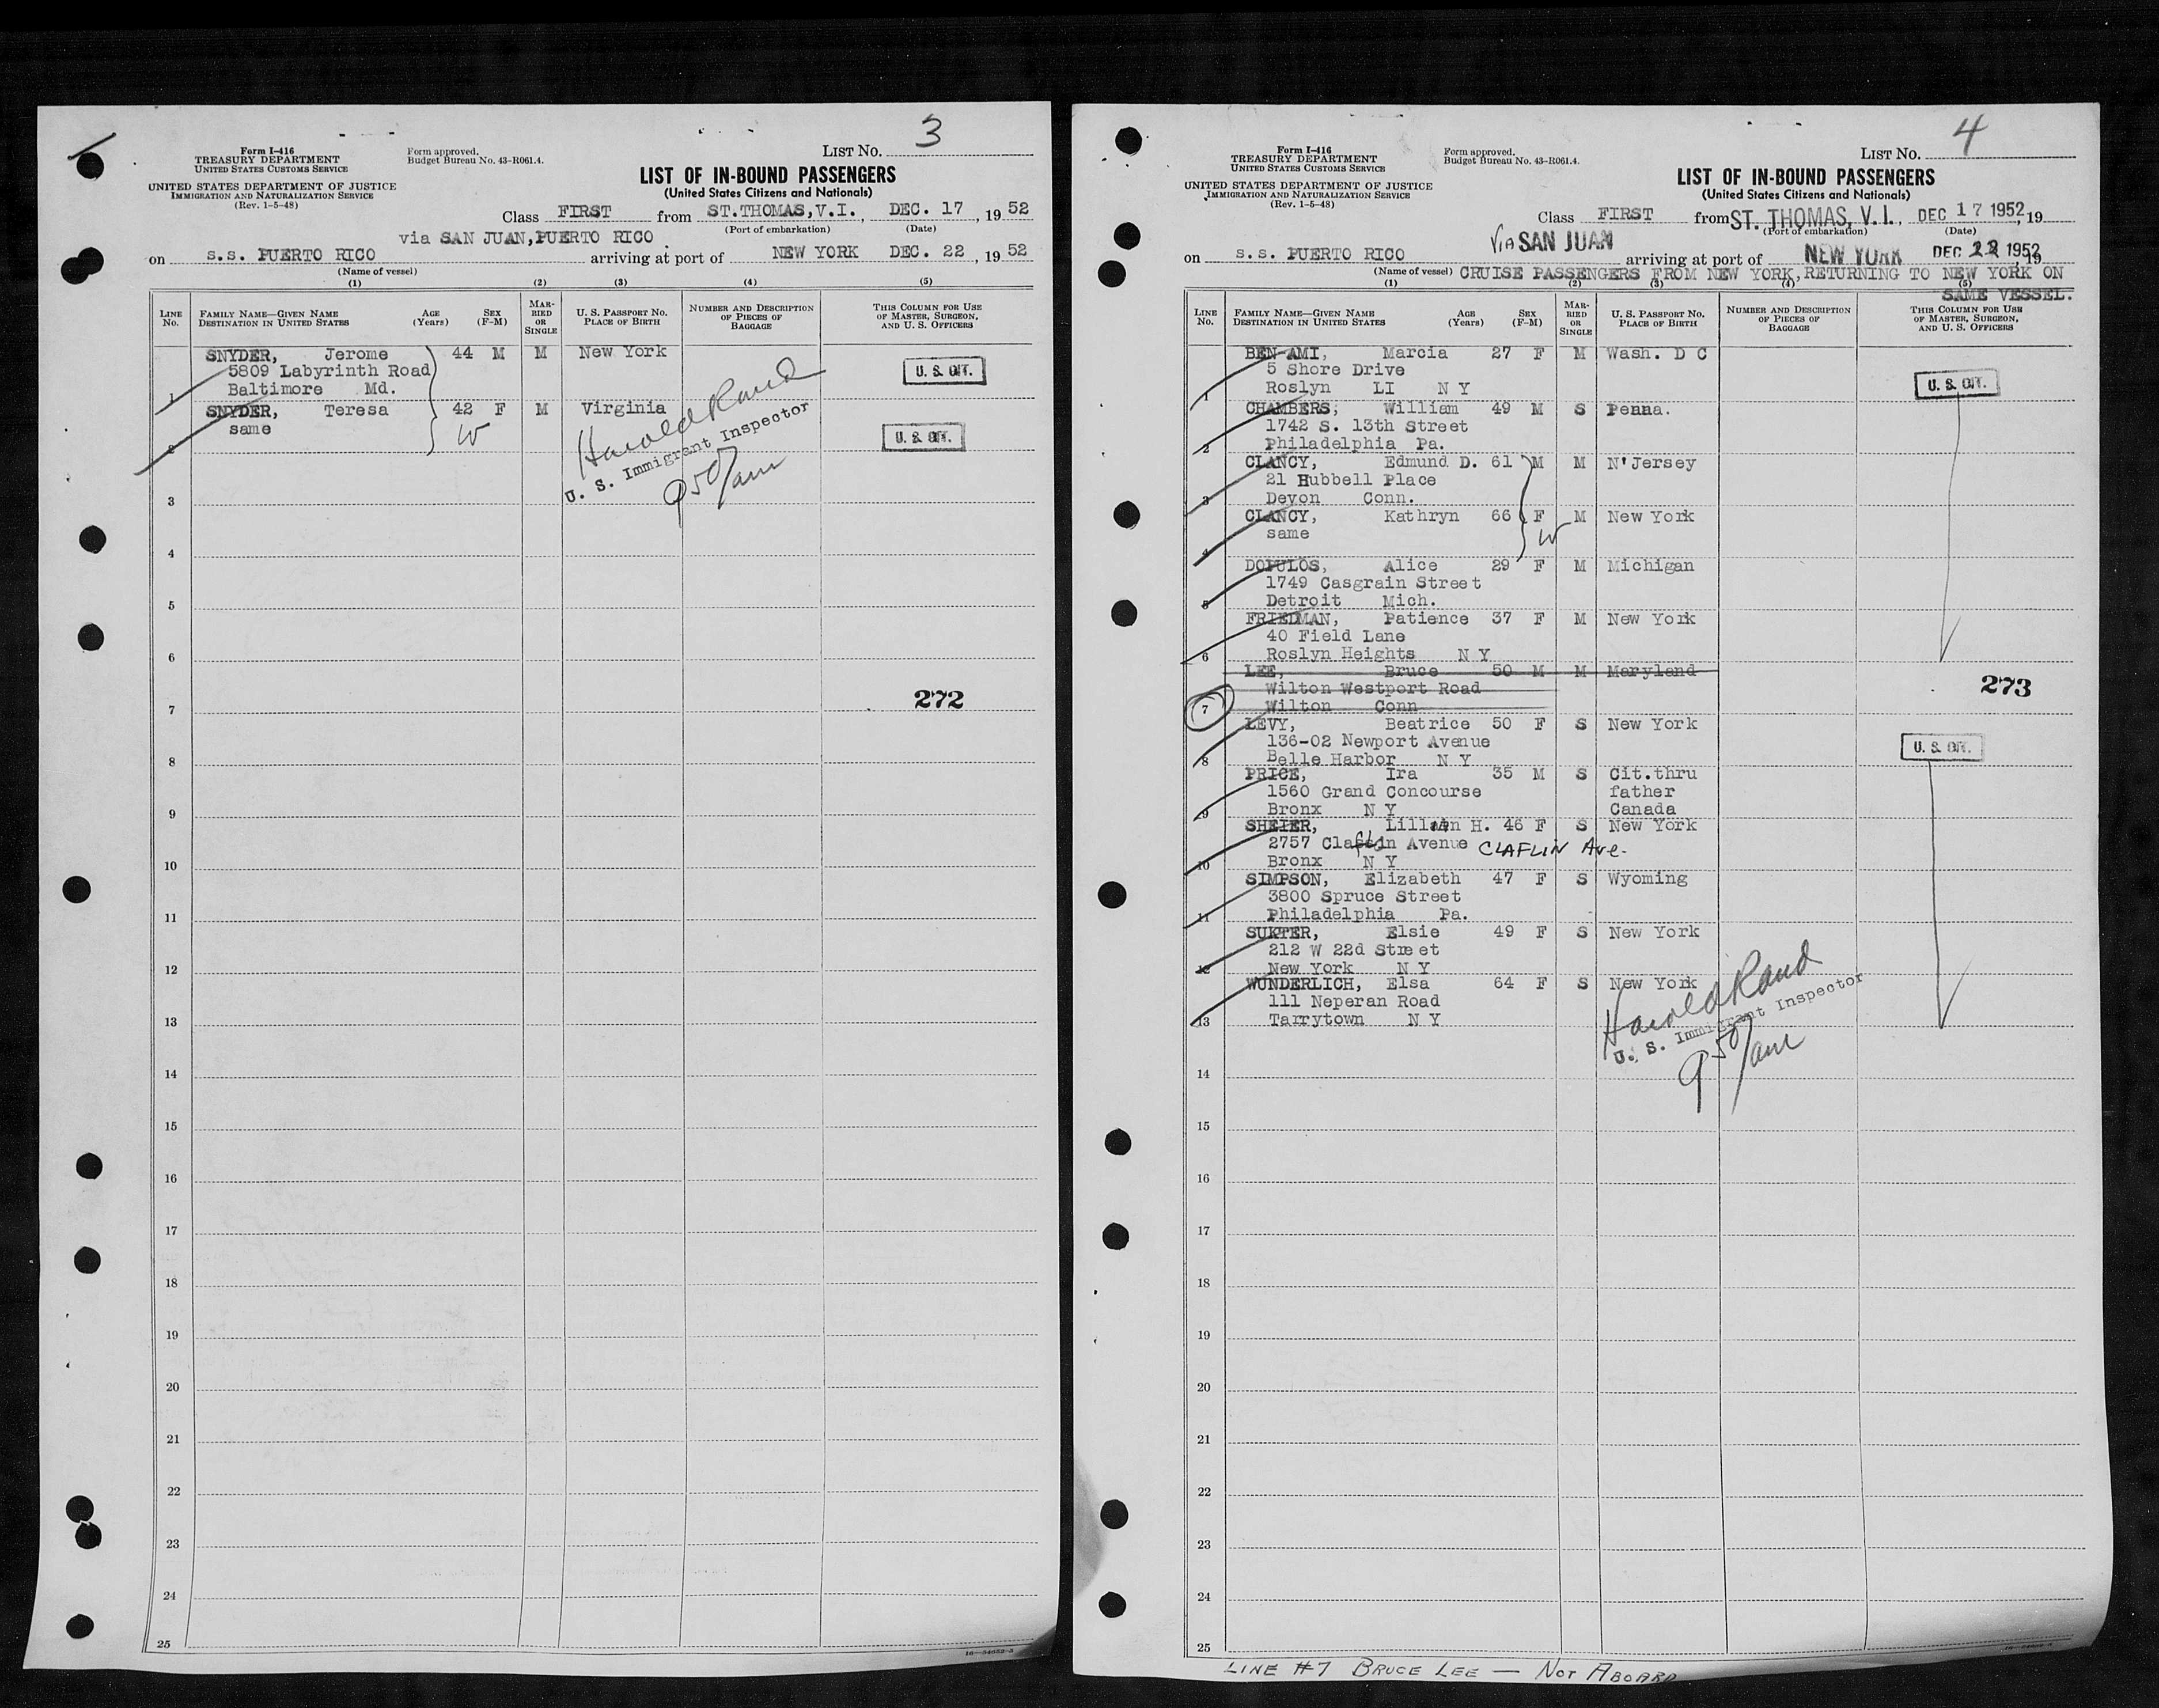 3
Form I-416
TREASURY DEPARTMENT
UNITED STATES CUSTOMS SERVICE
UNITED STATES DEPARTMENT OF JUSTICE
IMMIGRATION AND NATURALIZATION SERVICE
(Rev. 1-5-48)
Form approved.
Budget Bureau No. 43-R061.4.
LIST NO.
LIST OF IN-BOUND PASSENGERS
(United States Citizens and Nationals)
Class FIRST from ST.THOMAS,V.I., DEC. 17, 19 52
(Port of embarkation) (Date)
via SAN JUAN,PUERTO RICO
on s.s. PUERTO RICO arriving at port of NEW YORK DEC. 22, 19 52
(Name of vessel)
(1) (2) (3) (4) (5)
LINE No. FAMILY NAME—GIVEN NAME DESTINATION IN UNITED STATES AGE (Years) SEX (F-M) MARRIED OR SINGLE U. S. PASSPORT NO. PLACE OF BIRTH NUMBER AND DESCRIPTION OF PIECES OF BAGGAGE THIS COLUMN FOR USE OF MASTER, SURGEON, AND U. S. OFFICERS
SNYDER, Jerome 44 M M New York
5809 Labyrinth Road U. S. CIT.
1 Baltimore Md.
SNYDER, Teresa 42 F M Virginia
same W U. S. CIT.
2
Harold Rand
U. S. Immigrant Inspector
950/am
3
4
5
6
272
7
8
9
10
11
12
13
14
15
16
17
18
19
20
21
22
23
24
25
4
Form I-416
TREASURY DEPARTMENT
UNITED STATES CUSTOMS SERVICE
UNITED STATES DEPARTMENT OF JUSTICE
IMMIGRATION AND NATURALIZATION SERVICE
(Rev. 1-5-48)
Form approved.
Budget Bureau No. 43-R061.4.
LIST NO.
LIST OF IN-BOUND PASSENGERS
(United States Citizens and Nationals)
Class FIRST from ST. THOMAS, V. I., DEC 17 1952, 19
(Port of embarkation) (Date)
Via SAN JUAN
on s.s. PUERTO RICO arriving at port of NEW YORK DEC 22 1952 19
(Name of vessel) CRUISE PASSENGERS FROM NEW YORK,RETURNING TO NEW YORK ON
(1) (2) (3) (4) (5)
SAME VESSEL.
LINE No. FAMILY NAME—GIVEN NAME DESTINATION IN UNITED STATES AGE (Years) SEX (F-M) MARRIED OR SINGLE U. S. PASSPORT NO. PLACE OF BIRTH NUMBER AND DESCRIPTION OF PIECES OF BAGGAGE THIS COLUMN FOR USE OF MASTER, SURGEON, AND U. S. OFFICERS
BEN-AMI, Marcia 27 F M Wash. D C
5 Shore Drive
1 Roslyn LI N Y U. S. CIT.
CHAMBERS, William 49 M S Penna.
1742 S. 13th Street
2 Philadelphia Pa.
CLANCY, Edmund D. 61 M M N'Jersey
21 Hubbell Place
3 Devon Conn.
CLANCY, Kathryn 66 F M New York
same W
4
DOPULOS, Alice 29 F M Michigan
1749 Casgrain Street
5 Detroit Mich.
FRIEDMAN, Patience 37 F M New York
40 Field Lane
6 Roslyn Heights N Y
LEE, Bruce 50 M M Maryland
Wilton Westport Road 273
7 Wilton Conn
LEVY, Beatrice 50 F S New York
136-02 Newport Avenue U. S. CIT.
8 Belle Harbor N Y
PRICE, Ira 35 M S Cit.thru
1560 Grand Concourse father
9 Bronx N Y Canada
SHEIER, Lillian H. 46 F S New York
2757 Claflin Avenue CLAFLIN Ave.
10 Bronx N Y
SIMPSON, Elizabeth 47 F S Wyoming
3800 Spruce Street
11 Philadelphia Pa.
Elsie 49 F S New York
212 W 22d Street
12 New York N Y
WUNDERLICH, Elsa 64 F S New York
111 Neperan Road
13 Tarrytown N Y
Harold Rand
U. S. Immigrant Inspector
950/am
14
15
16
17
18
19
20
21
22
23
24
25
LINE #7 BRUCE LEE — NOT ABOARD